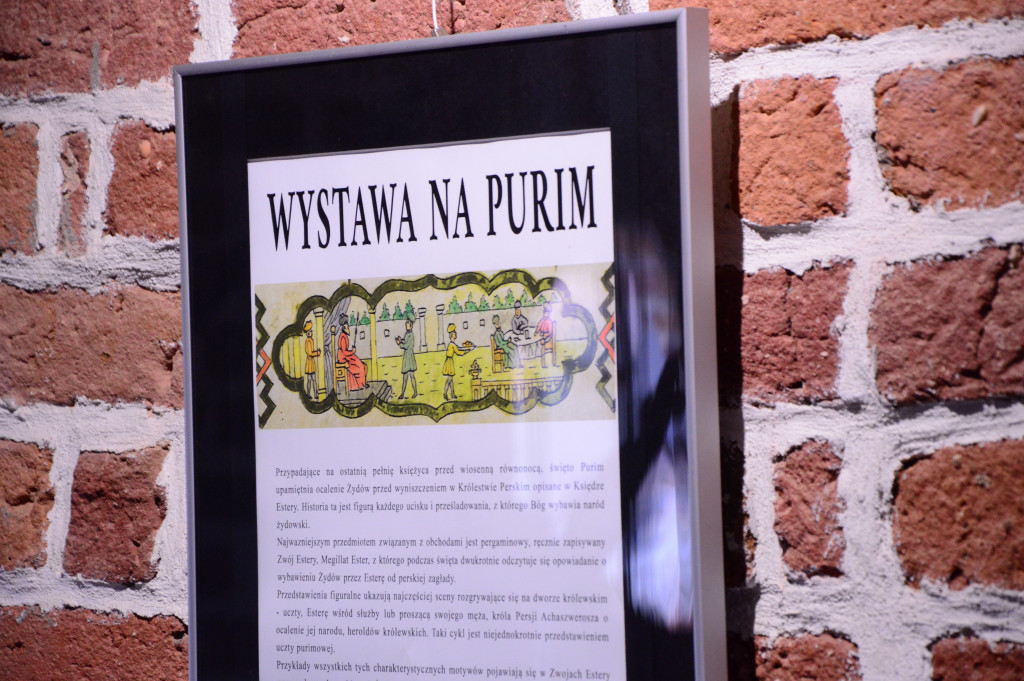 WYSTAWA NA PURIM
Przypadające na ostatnią pełnię księżyca przed wiosenną równonocą, święto Purim
upamiętnia ocalenie Żydów przed wyniszczeniem w Królestwie Perskim opisane w Księdze
Estery. Historia ta jest figurą każdego ucisku i prześladowania, z którego Bóg wybawia naród
żydowski.
Najważniejszym przedmiotem związanym z obchodami jest pergaminowy, ręcznie zapisywany
Zwój Estery, Megillat Ester, z którego podczas święta dwukrotnie odczytuje się opowiadanie o
wybawieniu Żydów przez Esterę od perskiej zagłady.
Przedstawienia figuralne ukazują najczęściej sceny rozgrywające się na dworze królewskim
- uczty, Esterę wśród służby lub proszącą swojego męża, króla Persji Achaszwerosza o
ocalenie jej narodu, heroldów królewskich. Taki cykl jest niejednokrotnie przedstawieniem
uczty purimowej.
Przykłady wszystkich tych charakterystycznych motywów pojawiają się w Zwojach Estery